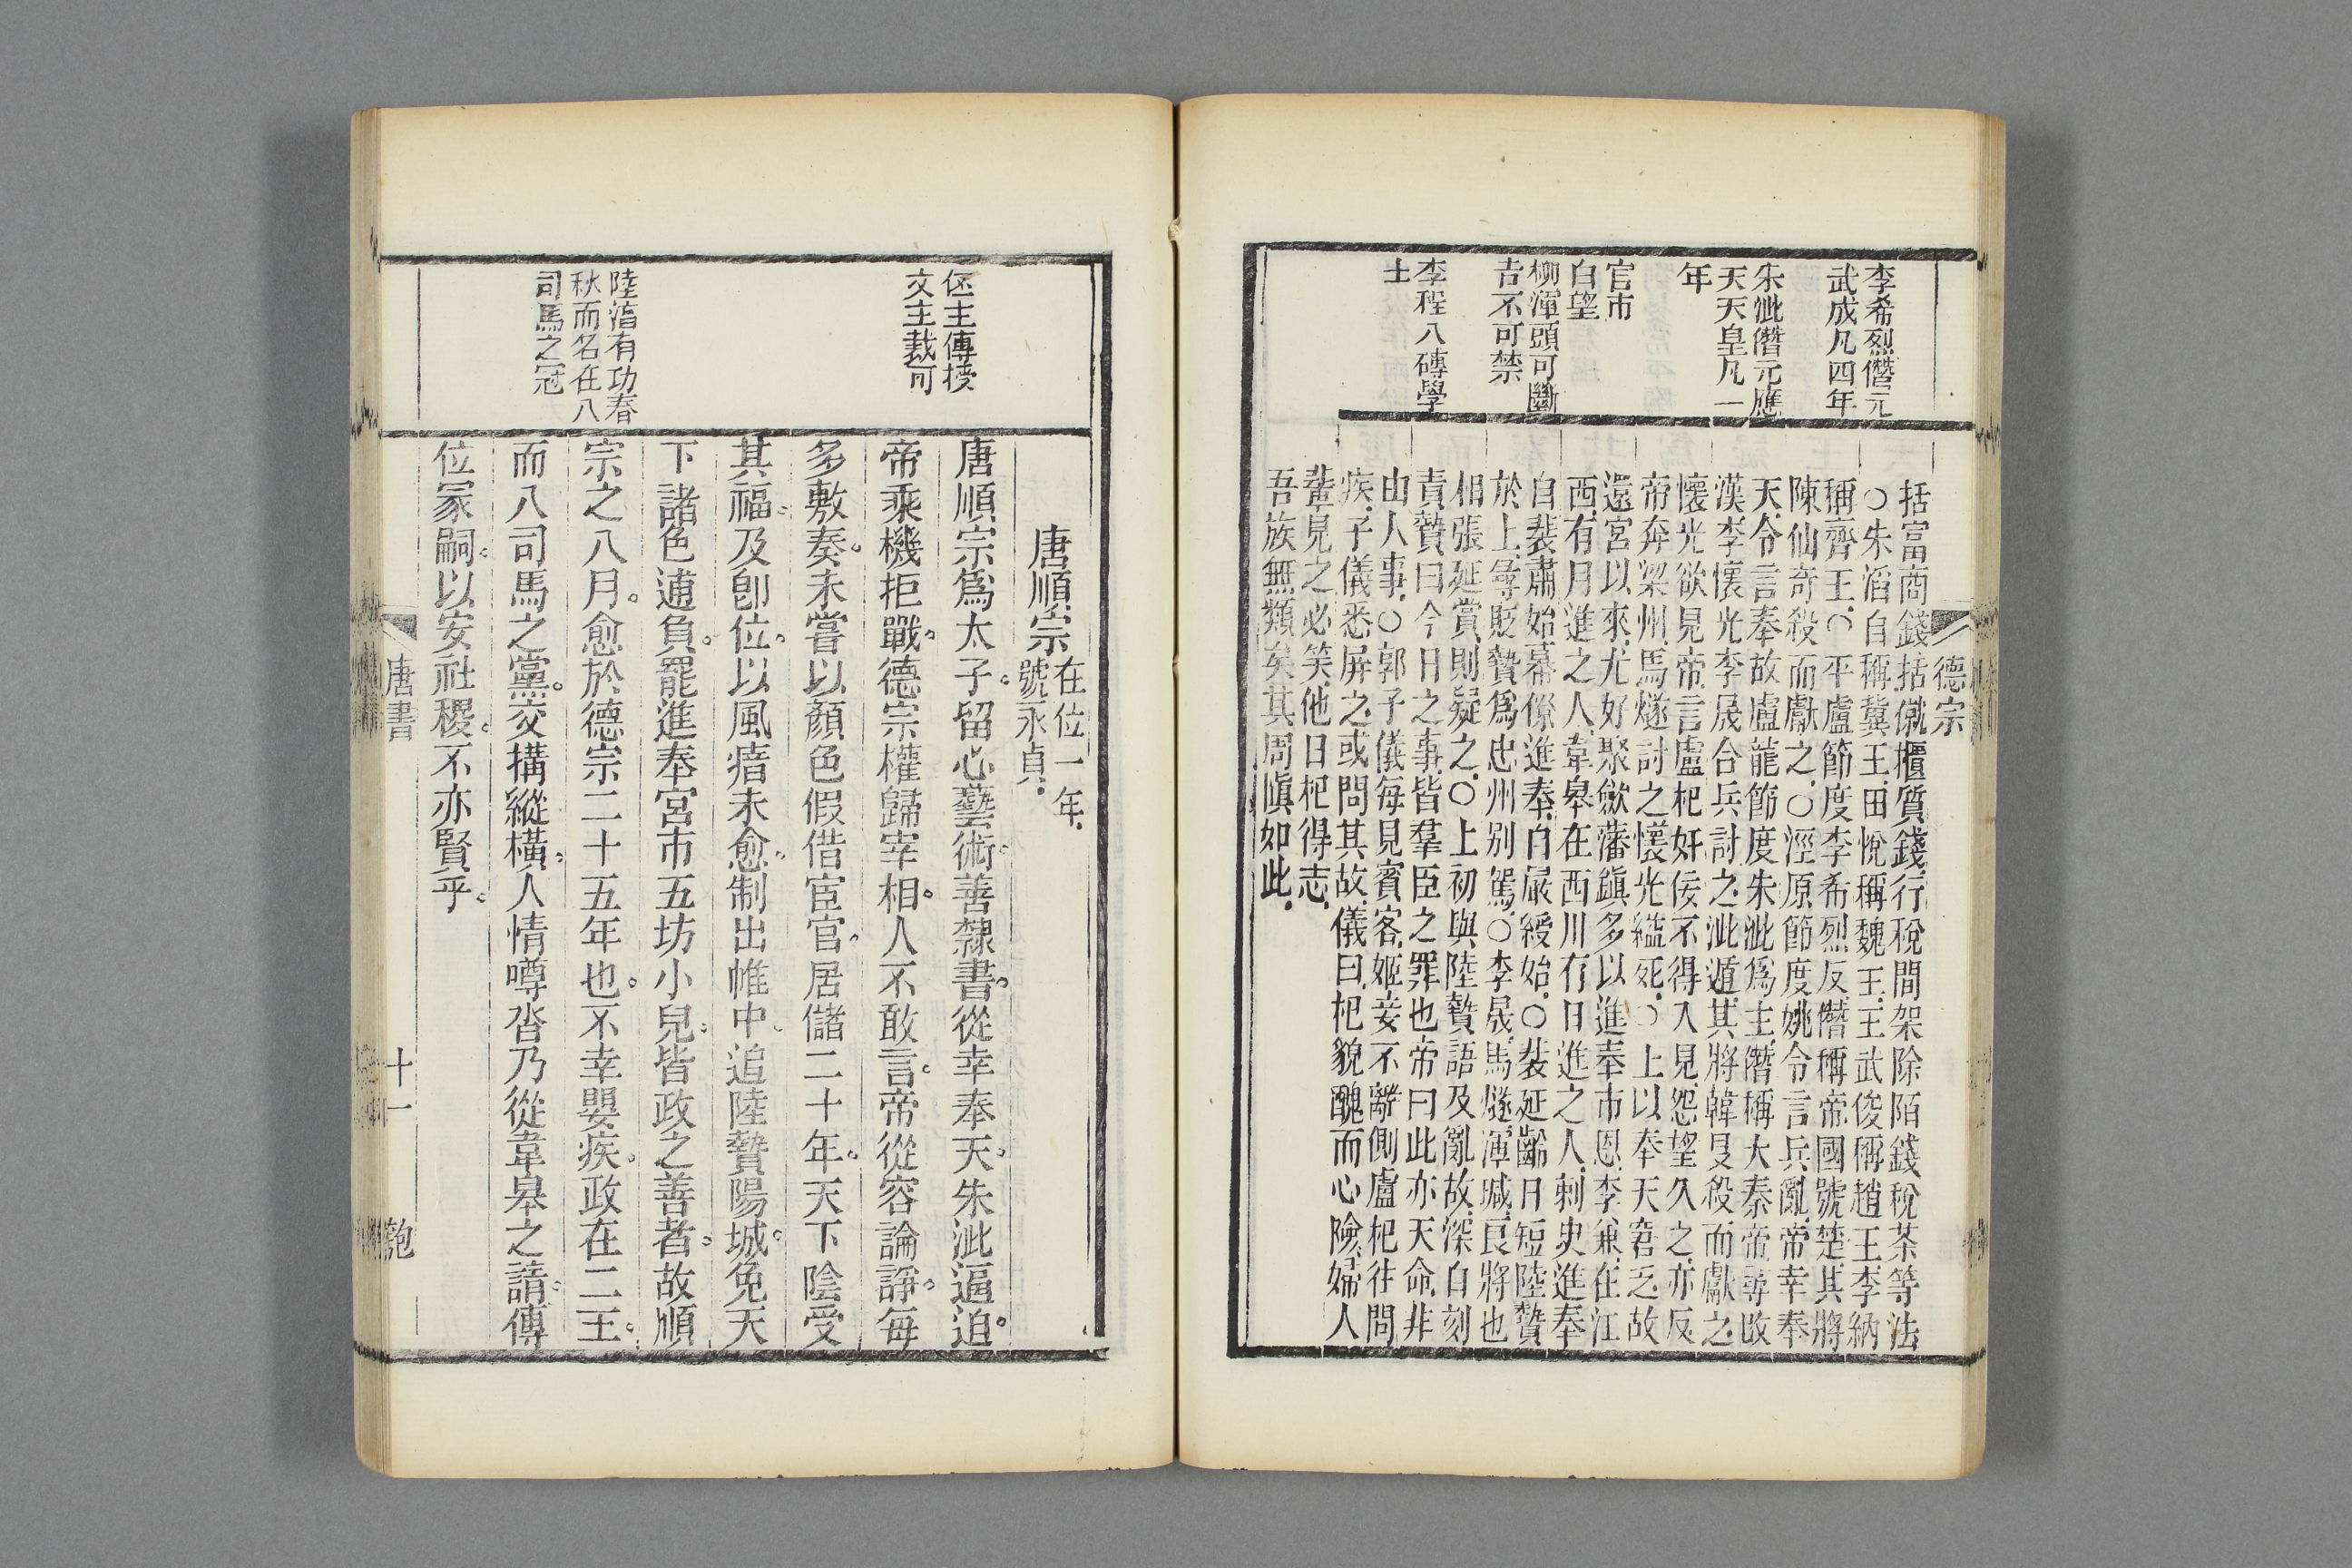 德宗
李希烈僭元
武成凡四年
朱泚僭元應
天天皇凡一
年
官市
白望
柳渾頭可斷
舌不可禁
李程八磚學
士
括富商錢括僦櫃質錢行稅間架除陌錢稅茶等法
○朱滔自稱冀王田悅稱魏王王武俊稱趙王李納
稱齊王○平盧節度李希烈反僭稱帝國號楚其將
陳仙奇殺而獻之○涇原節度姚令言兵亂帝幸奉
天令言奉故盧龍節度朱泚爲主僭稱大秦帝尋改
漢李懷光李晟合兵討之泚遁其將韓旻殺而獻之
懷光欲見帝言盧杞奸佞不得入見怨望久之亦反
帝奔梁州馬燧討之懷光縊死○上以奉天窘乏故
還宮以來尤好聚斂藩鎭多以進奉市恩李兼在江
西有月進之人韋皋在西川有日進之人刺史進奉
自裴肅始幕僚進奉自嚴綬始○裴延齡日短陸贄
於上尋貶贄爲忠州別駕○李晟馬燧渾瑊良將也
相張延賞則疑之○上初與陸贄語及亂故深自刻
責贄曰今日之事皆羣臣之罪也帝曰此亦天命非
由人事○郭子儀每見賓客姬妾不離側盧杞往問
疾子儀悉屏之或問其故儀曰杞貌醜而心險婦人
輩見之必笑他日杞得志
吾族無類矣其周愼如此
伾主傳授
文主裁可
陸淳有功春
秋而名在八
司馬之冠
唐順宗在位一年
號永貞
唐順宗爲太子留心藝術善隸書從幸奉天朱泚逼迫
帝乘機拒戰德宗權歸宰相人不敢言帝從容論諍每
多敷奏未嘗以顏色假借宦官居儲二十年天下陰受
其福及卽位以風瘖未愈制出帷中追陸贄陽城免天
下諸色逋負罷進奉宮市五坊小兒皆政之善者故順
宗之八月愈於德宗二十五年也不幸嬰疾政在二王
而八司馬之黨交搆縱橫人情噂沓乃從韋皋之請傳
位冢嗣以安社稷不亦賢乎
唐書
十一